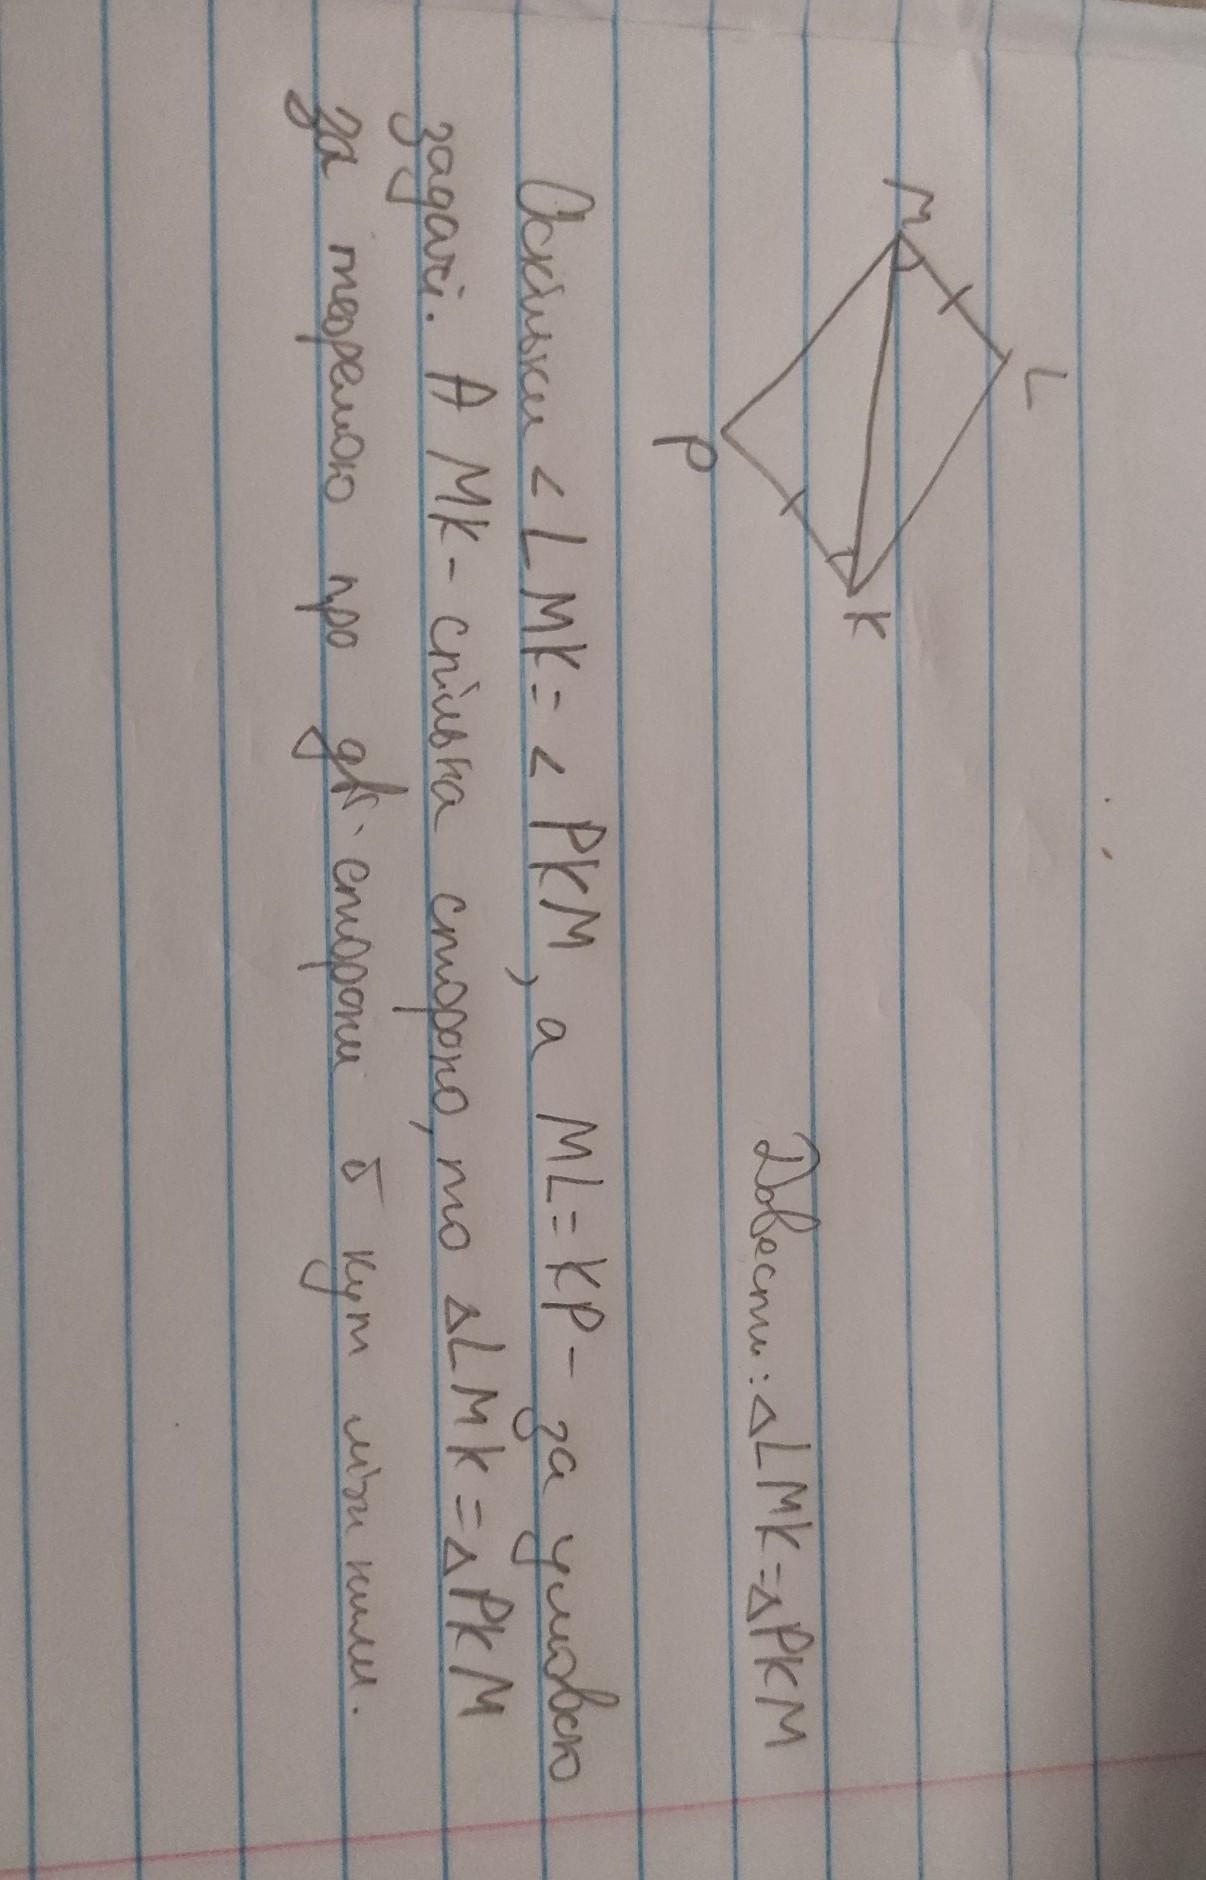 M
L
K
P
Довести: △LMK=△PKM
Оскільки < LMK = < PKM, а ML=KP- за умовою
задачі. А MK- спільна сторона, то △LMK=△PKM
за теоремою про дві сторони б кут між ними.